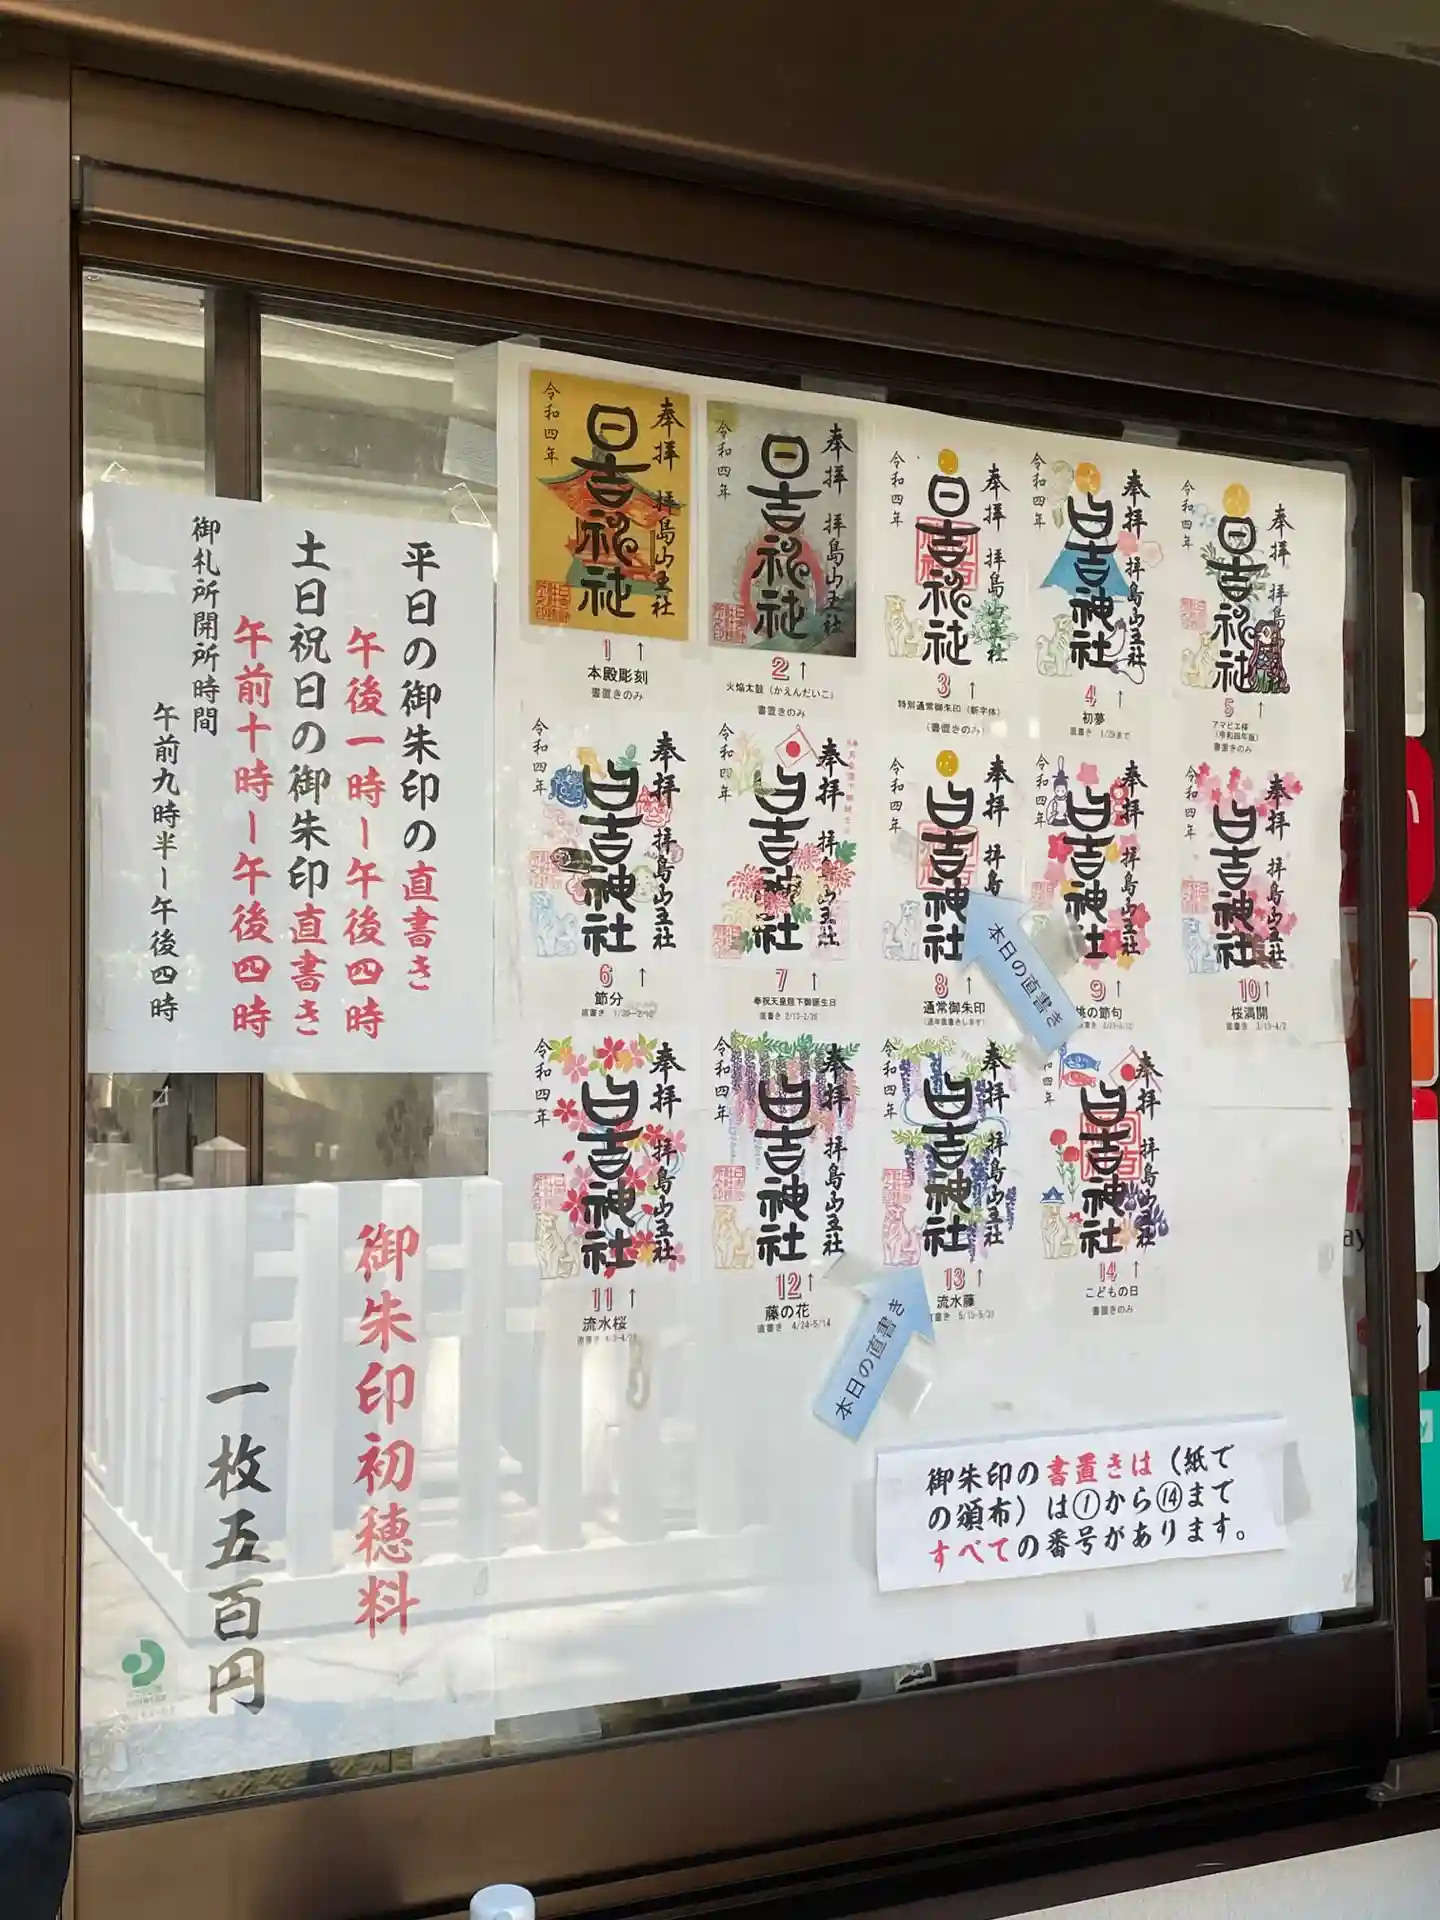 平日の御朱印の直書き
午後一時ー午後四時
土日祝日の御朱印直書き
午前十時ー午後四時
御札所開所時間
午前九時半ー午後四時
御朱印初穂料
一枚五百円
奉拝 拝島山王社
日吉神社
令和四年
1↑
本殿彫刻
書置きのみ
奉拝 拝島山王社
日吉神社
令和四年
2↑
火焔太鼓(かえんだいこ)
書置きのみ
奉拝 拝島山王社
日吉神社
令和四年
3↑
特別通常御朱印(新字体)
(書置きのみ)
奉拝 拝島山王社
日吉神社
令和四年
4↑
初夢
直書き 1/29まで
奉拝 拝島山
日吉神社
令和四年
5↑
アマビエ様
(令和四年版)
書置きのみ
奉拝 拝島山王社
日吉神社
令和四年
6↑
節分
直書き
奉拝 拝島山王社
日吉神社
令和四年
7↑
奉祝天皇陛下御誕生日
直書き
奉拝 拝島
日吉神社
令和四年
8↑
通常御朱印
(通年直書きします)
本日の直書き
奉拝 拝島山王社
日吉神社
令和四年
9↑
桃の節句
直書き
奉拝 拝島山王社
日吉神社
令和四年
10↑
桜満開
直書き 3/13-4/2
奉拝 拝島山王社
日吉神社
令和四年
11↑
流水桜
直書き
奉拝 拝島山王社
日吉神社
令和四年
12↑
藤の花
直書き 4/24-5/14
奉拝 拝島山王社
日吉神社
令和四年
13↑
流水藤
直書き 5/15-5/31
本日の直書き
奉拝 拝島山王社
日吉神社
和四年
14↑
こどもの日
書置きのみ
御朱印の書置きは(紙で
の頒布)は①から⑭まで
すべての番号があります。